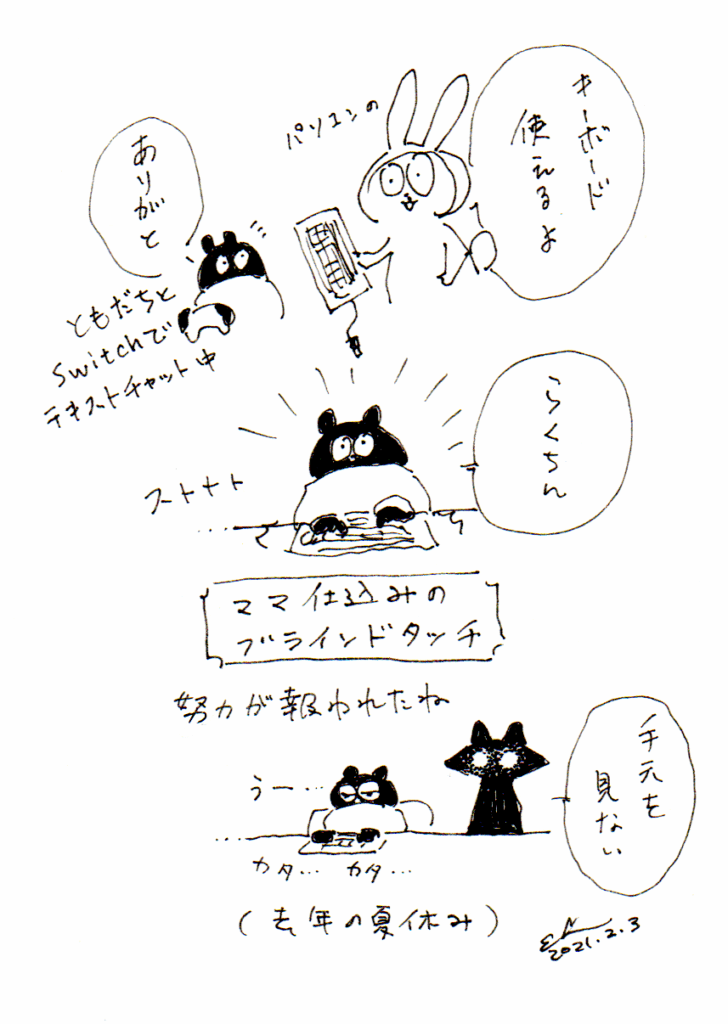 パソコンの
キーボード
使えるよ
ありがと
ともだちと
Switchで
テキストチャット中
らくちん
ストトト
ママ仕込みの
ブラインドタッチ
努力が報われたね
うー…
手元を
見ない
カタ… カタ…
(去年の夏休み)
2021.2.3